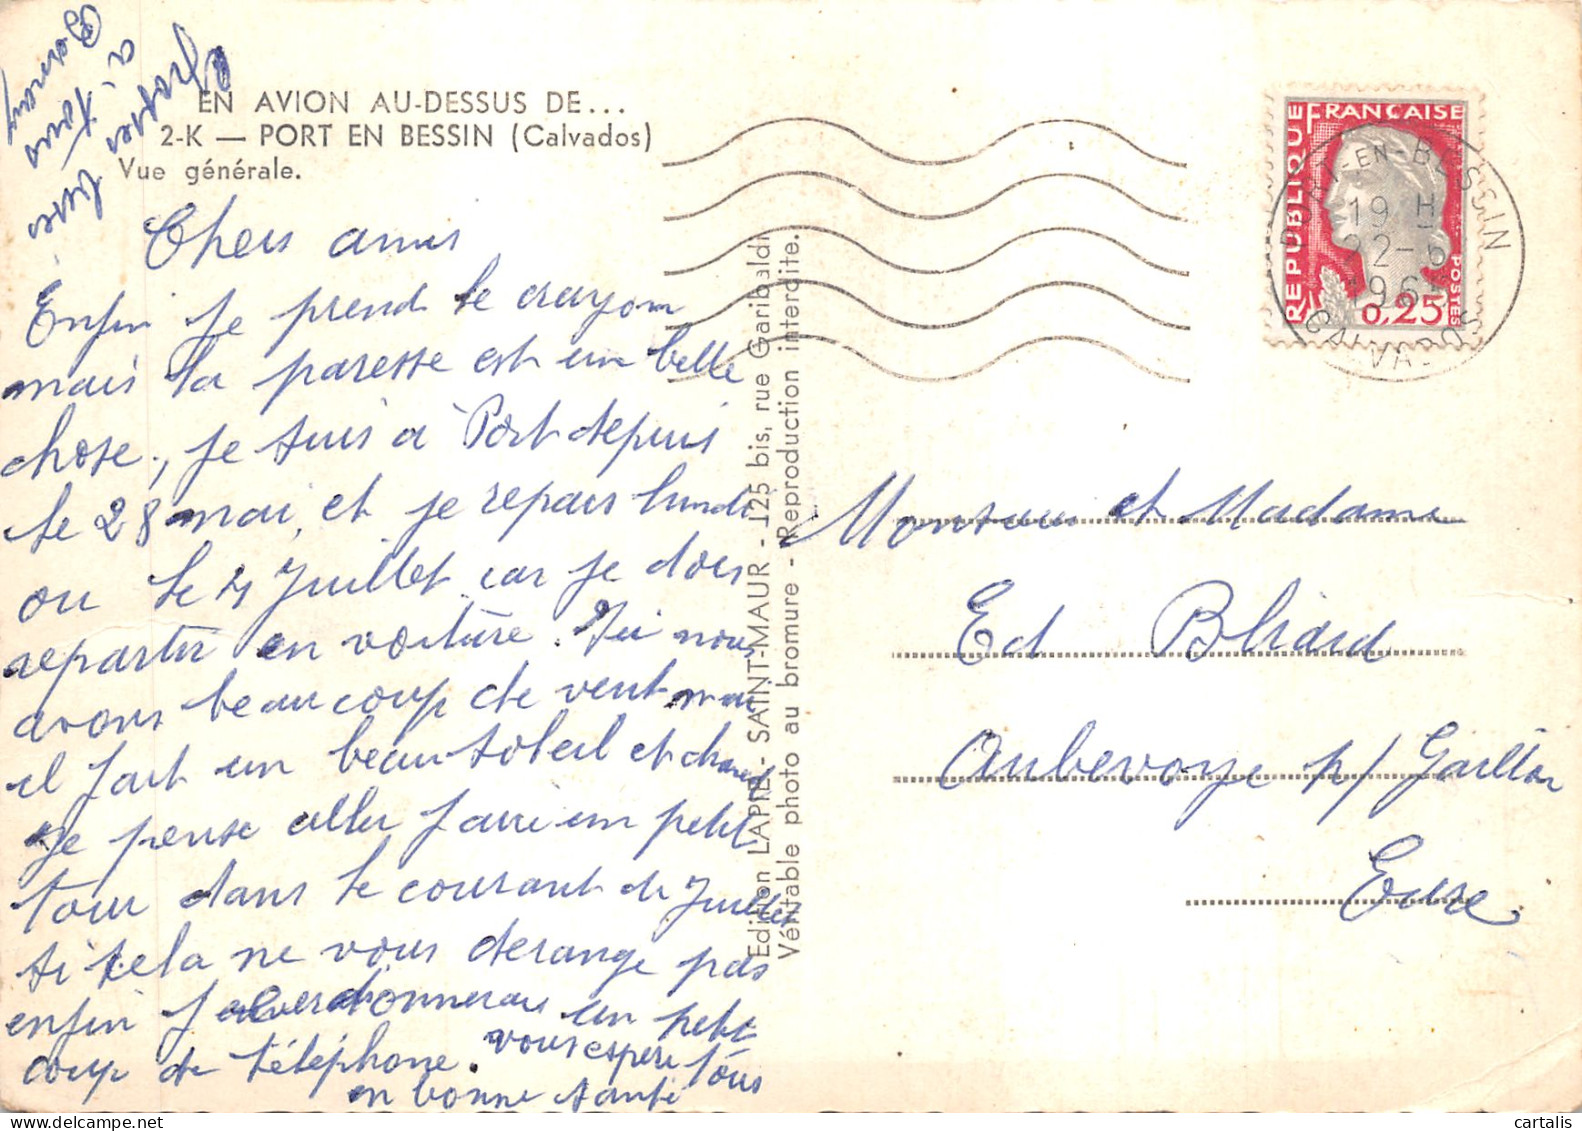 EN AVION AU-DESSUS DE...
2-K — PORT EN BESSIN (Calvados)
Vue générale.
Chers amis
Enfin je prend le crayon
mais la paresse est un belle
chose, je suis à Port depuis
le 28 mai, et je repars lundi
ou le 4 Juillet car je dois
repartir en voiture. Ici nous
avons beaucoup de vent mai
il fait un beau soleil et chaud
Je pense aller faire un petit
tour dans le courant de Juillet
si cela ne vous derange pas
enfin je donnerais un petit
coup de téléphone. vous espere tous
en bonne santé
Grosses bises
à tous
Edition LAPIE - SAINT-MAUR - 125 bis, rue Garibaldi
Véritable photo au bromure - Reproduction interdite.
REPUBLIQUE FRANÇAISE
POSTES
0,25
PORT-EN-BESSIN
19 H
22-6
196
CALVADOS
Monsieur et Madame
Ed Bliard
Aubevoye p/ Gaillon
Eure
cartalis